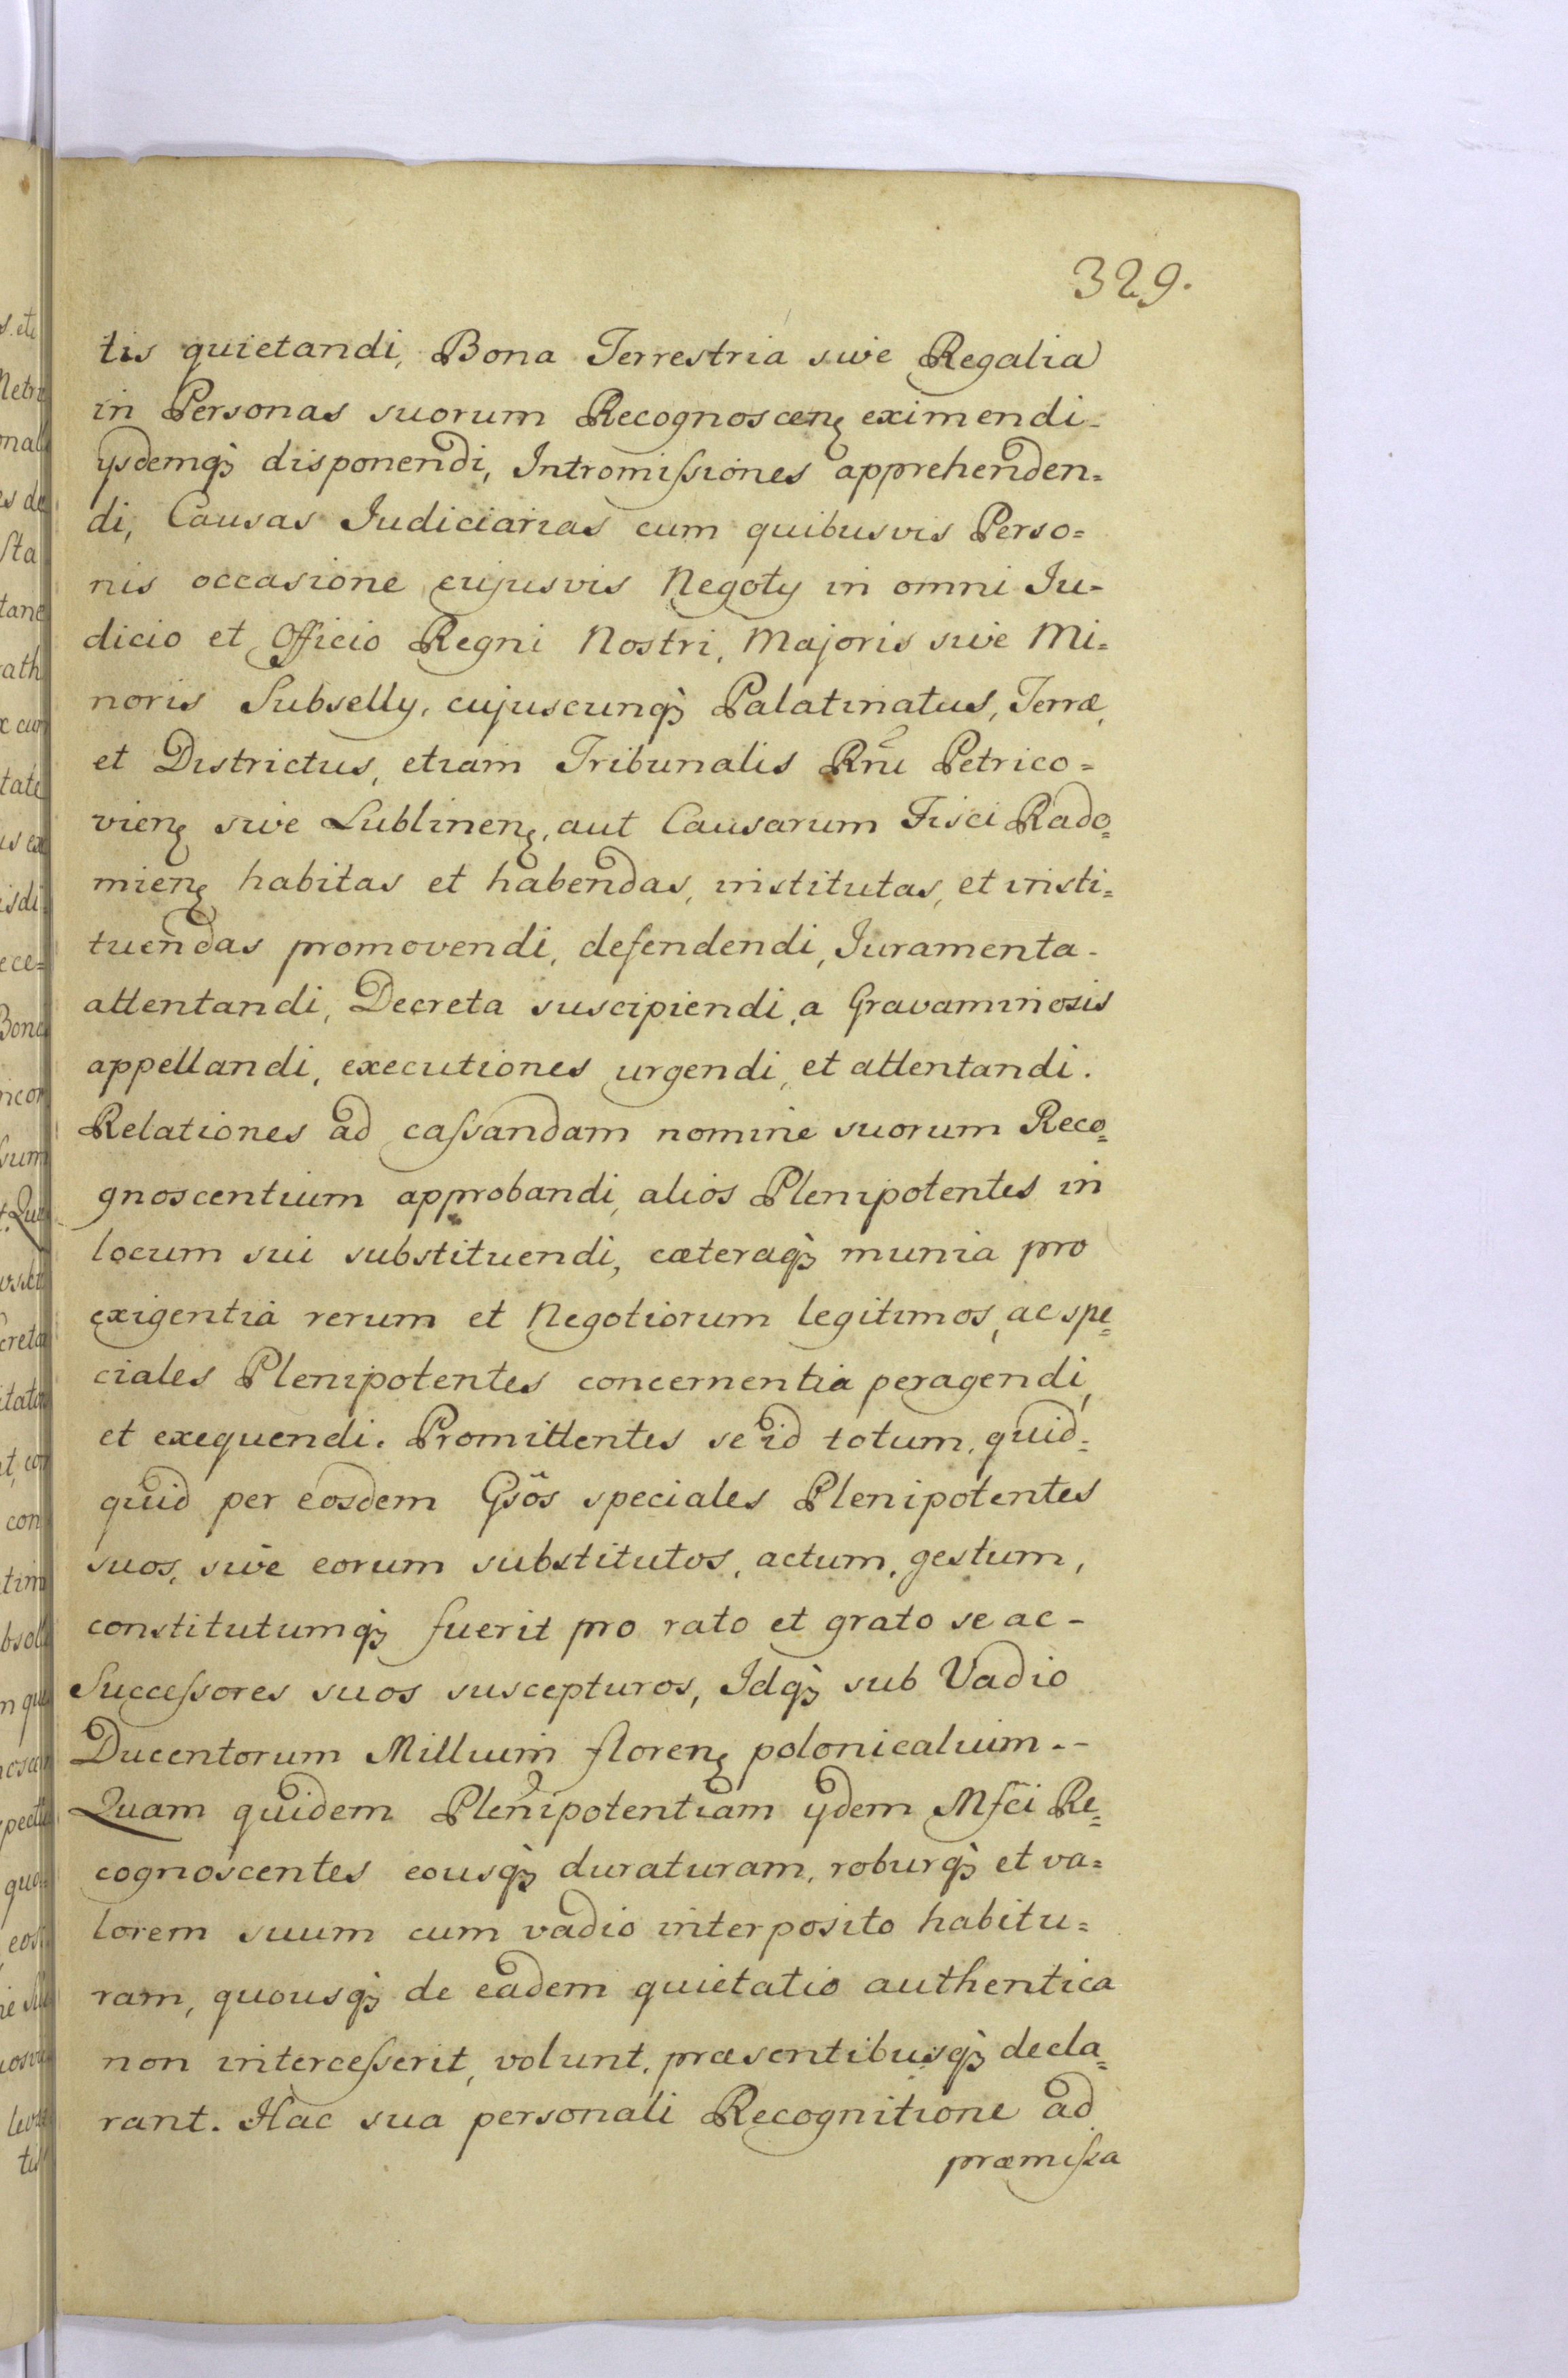 329.
tis quietandi, Bona Terrestria sive Regalia
in Personas suorum Recognoscenꝫ eximendi
ysdemqꝫ disponendi, Intromiſsiones apprehenden=
di, Causas Iudiciarias cum quibusvis Perso=
nis occasione cujusvis Negoty in omni Iu-
dicio et Officio Regni Nostri, Majoris sive Mi=
noris Subselly, cujuscunqꝫ Palatinatus, Terræ,
et Districtus, etiam Tribunalis Rñi Petrico=
vienꝫ sive Lublinenꝫ, aut Causarum Fisci Rado=
mienꝫ habitas et habendas, institutas, et insti=
tuendas promovendi, defendendi, Iuramenta-
attentandi, Decreta suscipiendi, a Gravaminosis
appellandi, executiones urgendi, et attentandi.
Relationes ad caſsandam nomine suorum Reco=
gnoscentium approbandi, alios Plenipotentes in
locum sui substituendi, cæteraqꝫ munia pro
exigentia rerum et Negotiorum legitimos, ac spe=
ciales Plenipotentes concernentia peragendi,
et exequendi. Promittentes se id totum, quid=
quid per eosdem Gsõs speciales Plenipotentes
suos, sive eorum substitutos, actum, gestum,
constitutumqꝫ fuerit pro rato et grato se ac-
Succeſsores suos suscepturos, Idqꝫ sub Vadio
Ducentorum Millium florenꝫ polonicalium.-
Quam quidem Plenipotentiam ydem Mfci Re=
cognoscentes eousqꝫ duraturam, roburqꝫ et va=
lorem suum cum vadio interposito habitu=
ram, quousqꝫ de eadem quietatio authentica
non interceſserit, volunt, præsentibusqꝫ decla=
rant. Hac sua personali Recognitione ad
præmiſsa